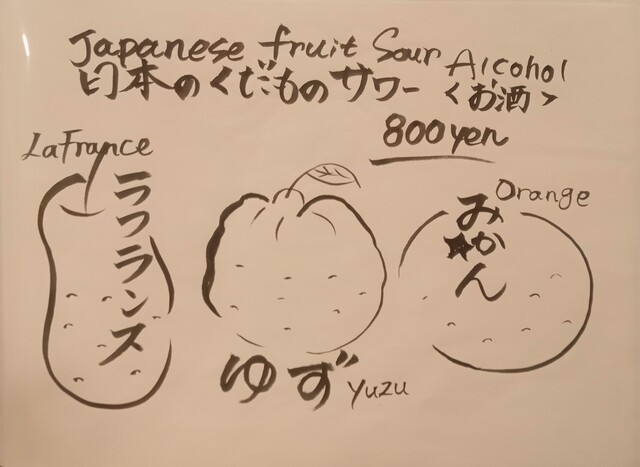 Japanese fruit Sour Alcohol
日本のくだものサワー <お酒>
800yen
LaFrance
ラフランス
ゆず yuzu
Orange
みかん